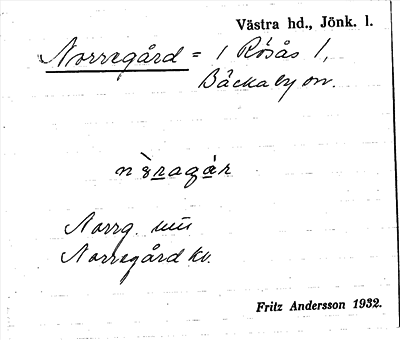 Västra hd., Jönk. l.
Norregård = 1 Rösås 1,
Bäckaby sn.
Norrg. un
Norregård kv.
Fritz Andersson 1932.